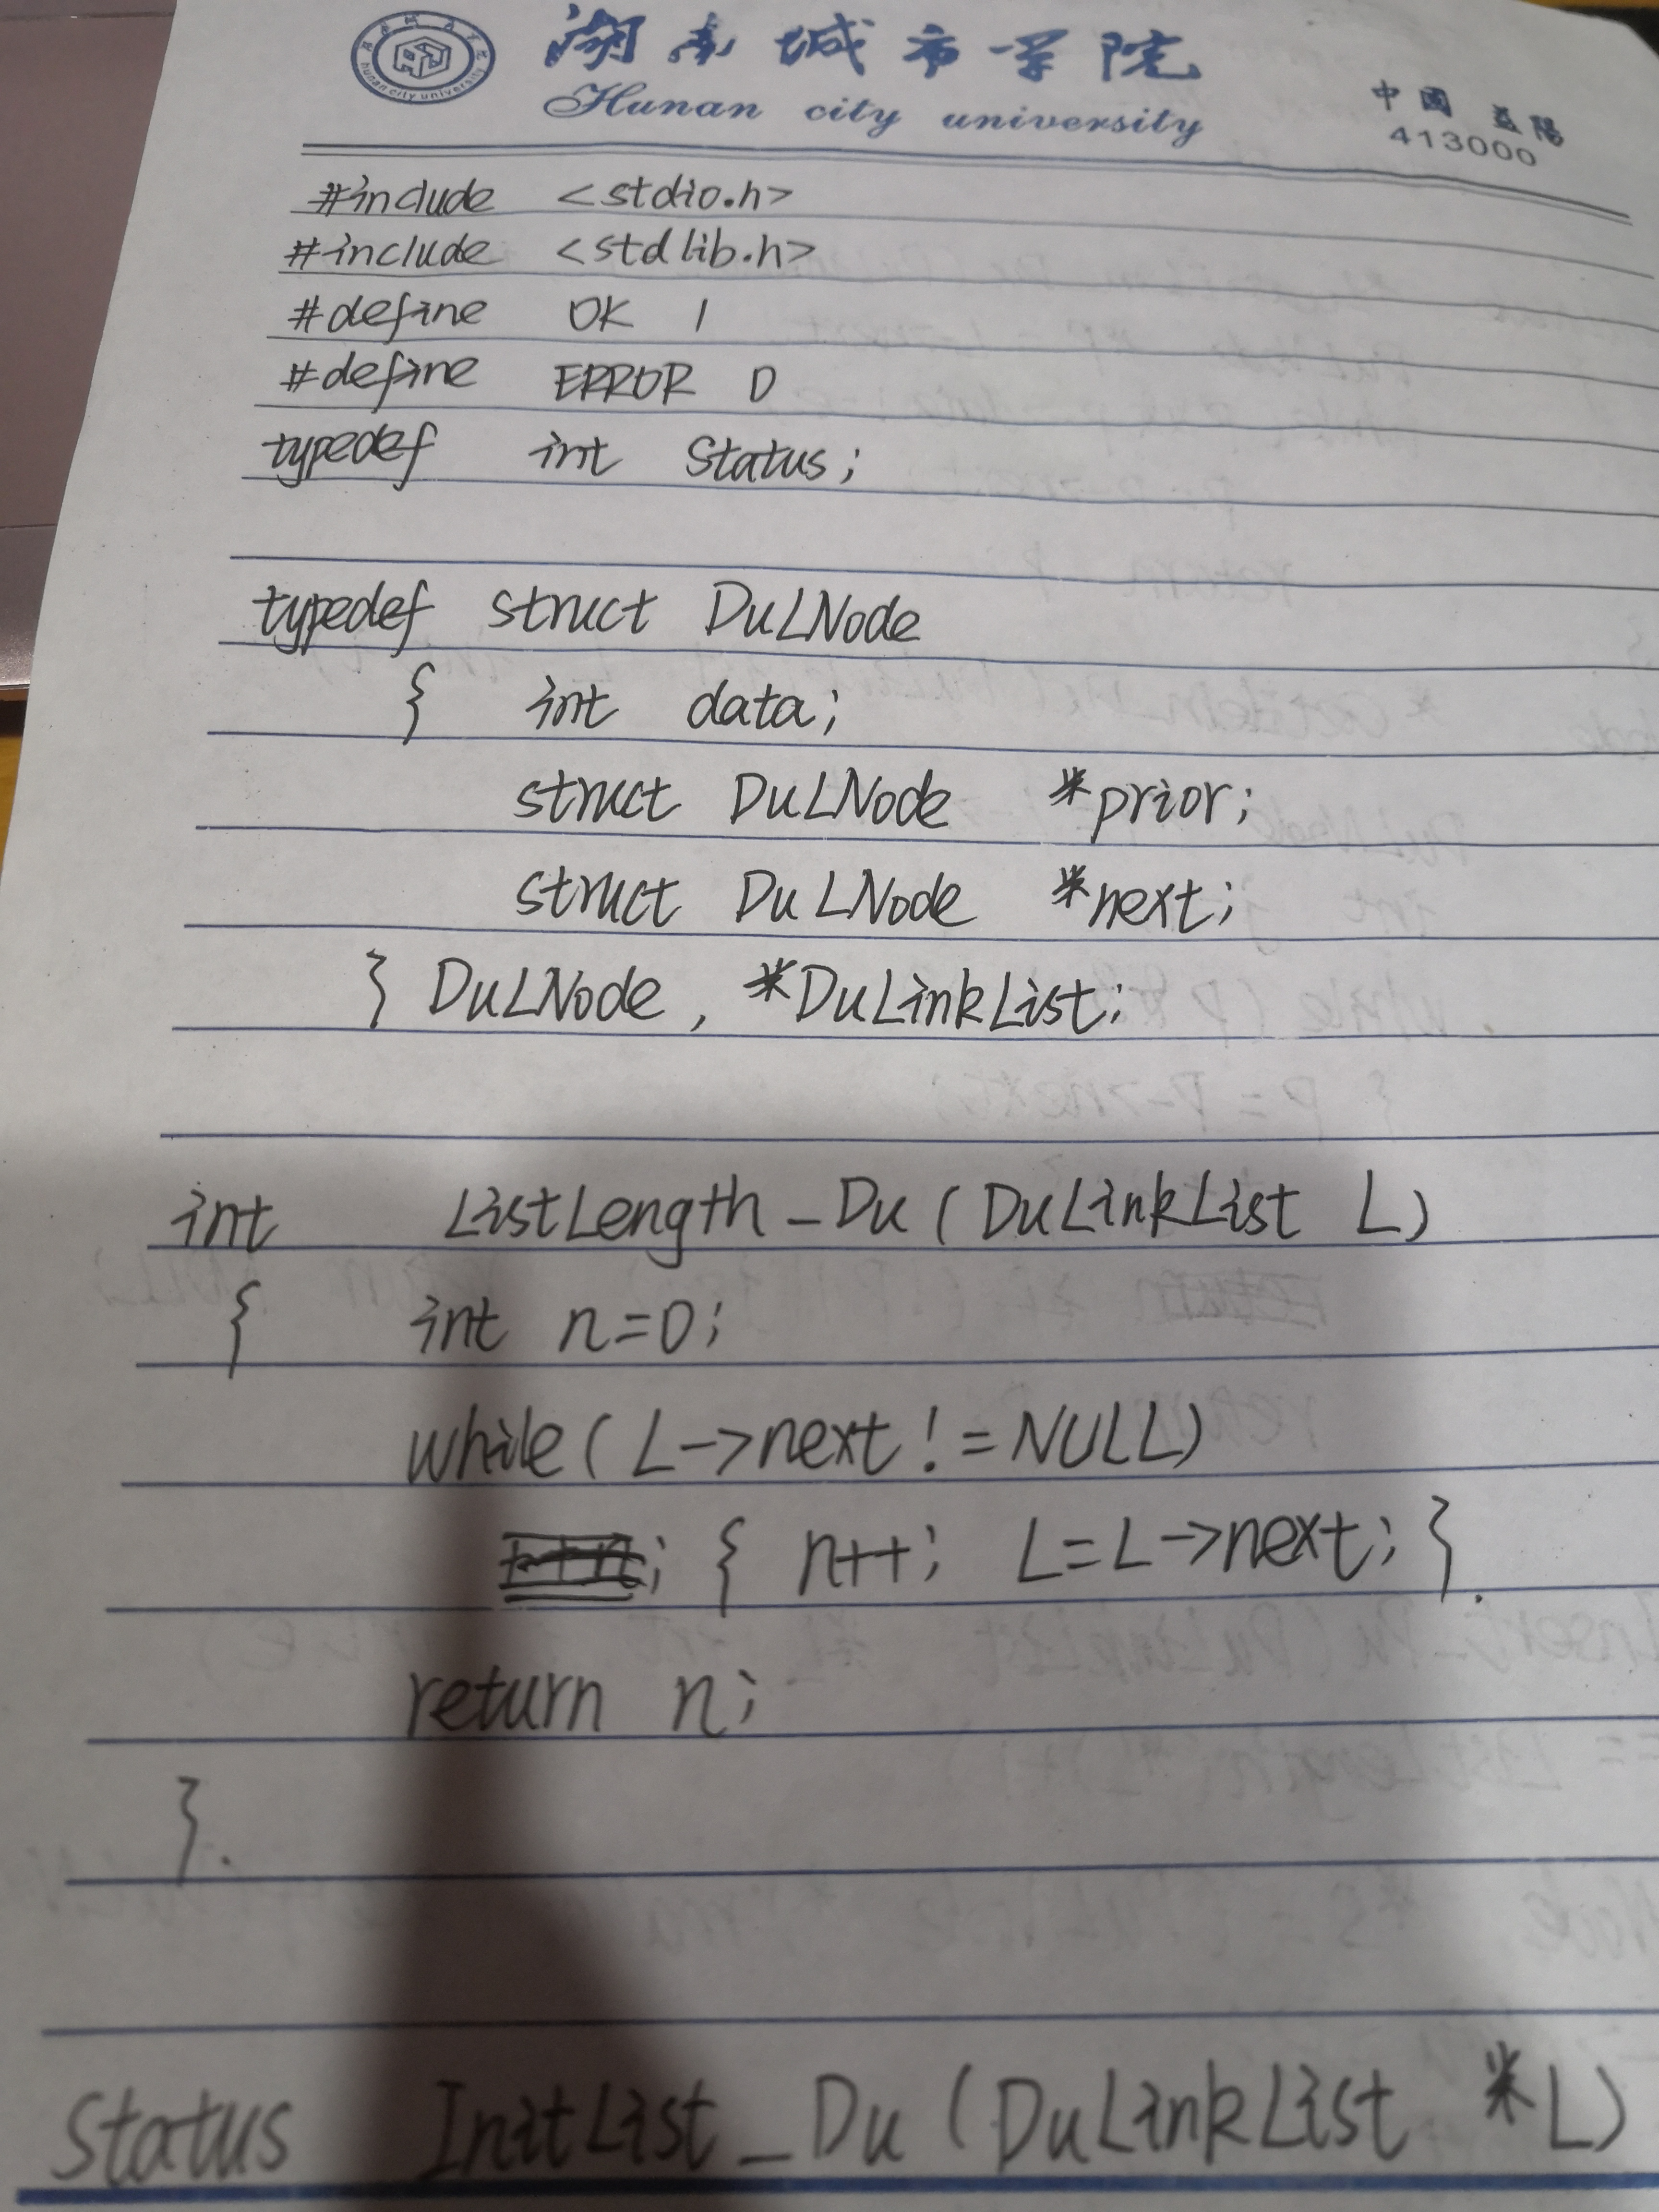 湖南城市学院
Hunan city university
中國 益陽
413000
hunan city university
#include <stdio.h>
#include <stdlib.h>
#define OK 1
#define ERROR 0
typedef int Status;
typedef struct DuLNode
{ int data;
struct DuLNode *prior;
struct DuLNode *next;
} DuLNode, *DuLinkList;
int ListLength_Du(DuLinkList L)
{ int n=0;
while(L->next!=NULL)
; { n++; L=L->next; }.
return n;
}.
Status InitList_Du(DuLinkList *L)